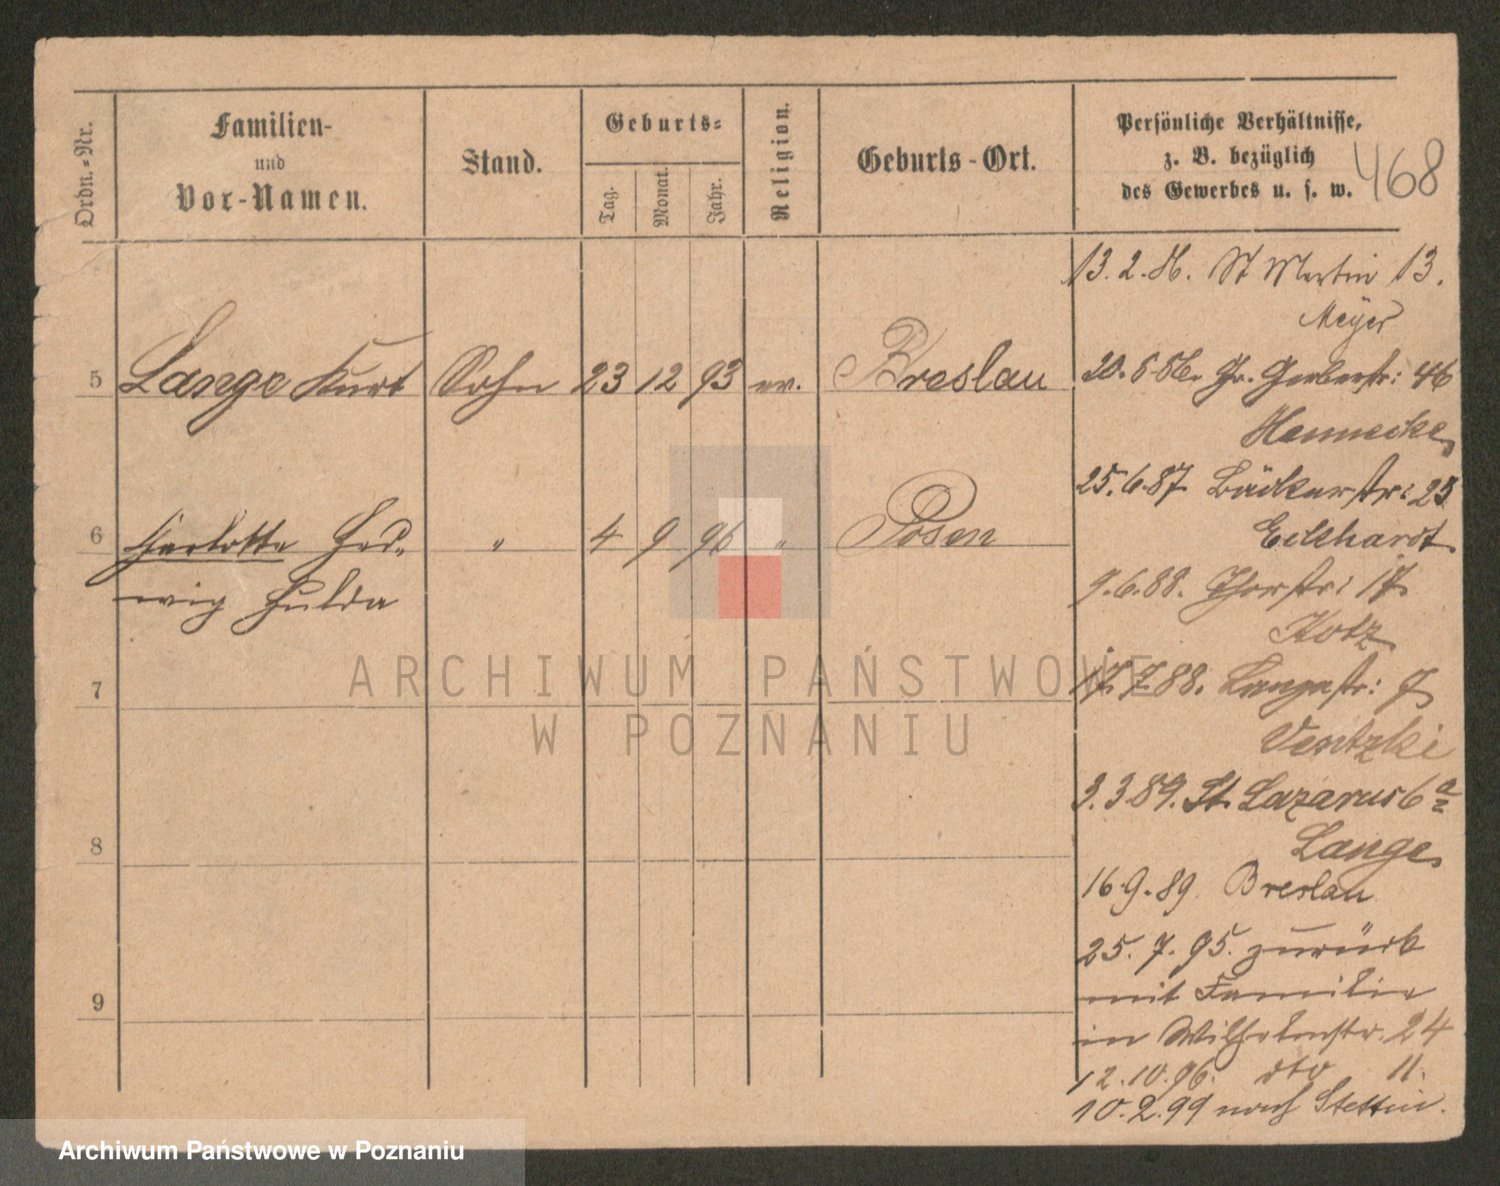 Ordn.-Nr.
Familien-
und
Vor-Namen.
Stand.
Geburts-
Tag.
Monat.
Jahr.
Religion.
Geburts-Ort.
Persönliche Verhältnisse,
z. B. bezüglich
des Gewerbes u. s. w.
468
5 Lange Kurt Sohn 23 12 93 ev. Breslau
6 Charlotte Hed-
wig Hulda
" 4 9 96 " Posen
7
8
9
13.2.86. St Martin 13.
Meyer
20.5.86. Gr. Gerberstr: 46
Hennecke
25.6.87 Bäckerstr: 25
Eckhardt
9.6.88. Thorstr: 17.
Kotz
17.7.88. Langestr: 7
Ventzki
3.3.89. St. Lazarus 6a
Lange
16.9.89. Breslau
25.7.95. zurück
mit Familie
in Wilhelmstr. 24
12.10.96. dto 11.
10.2.99 nach Stettin.
ARCHIWUM PAŃSTWOWE
W POZNANIU
Archiwum Państwowe w Poznaniu